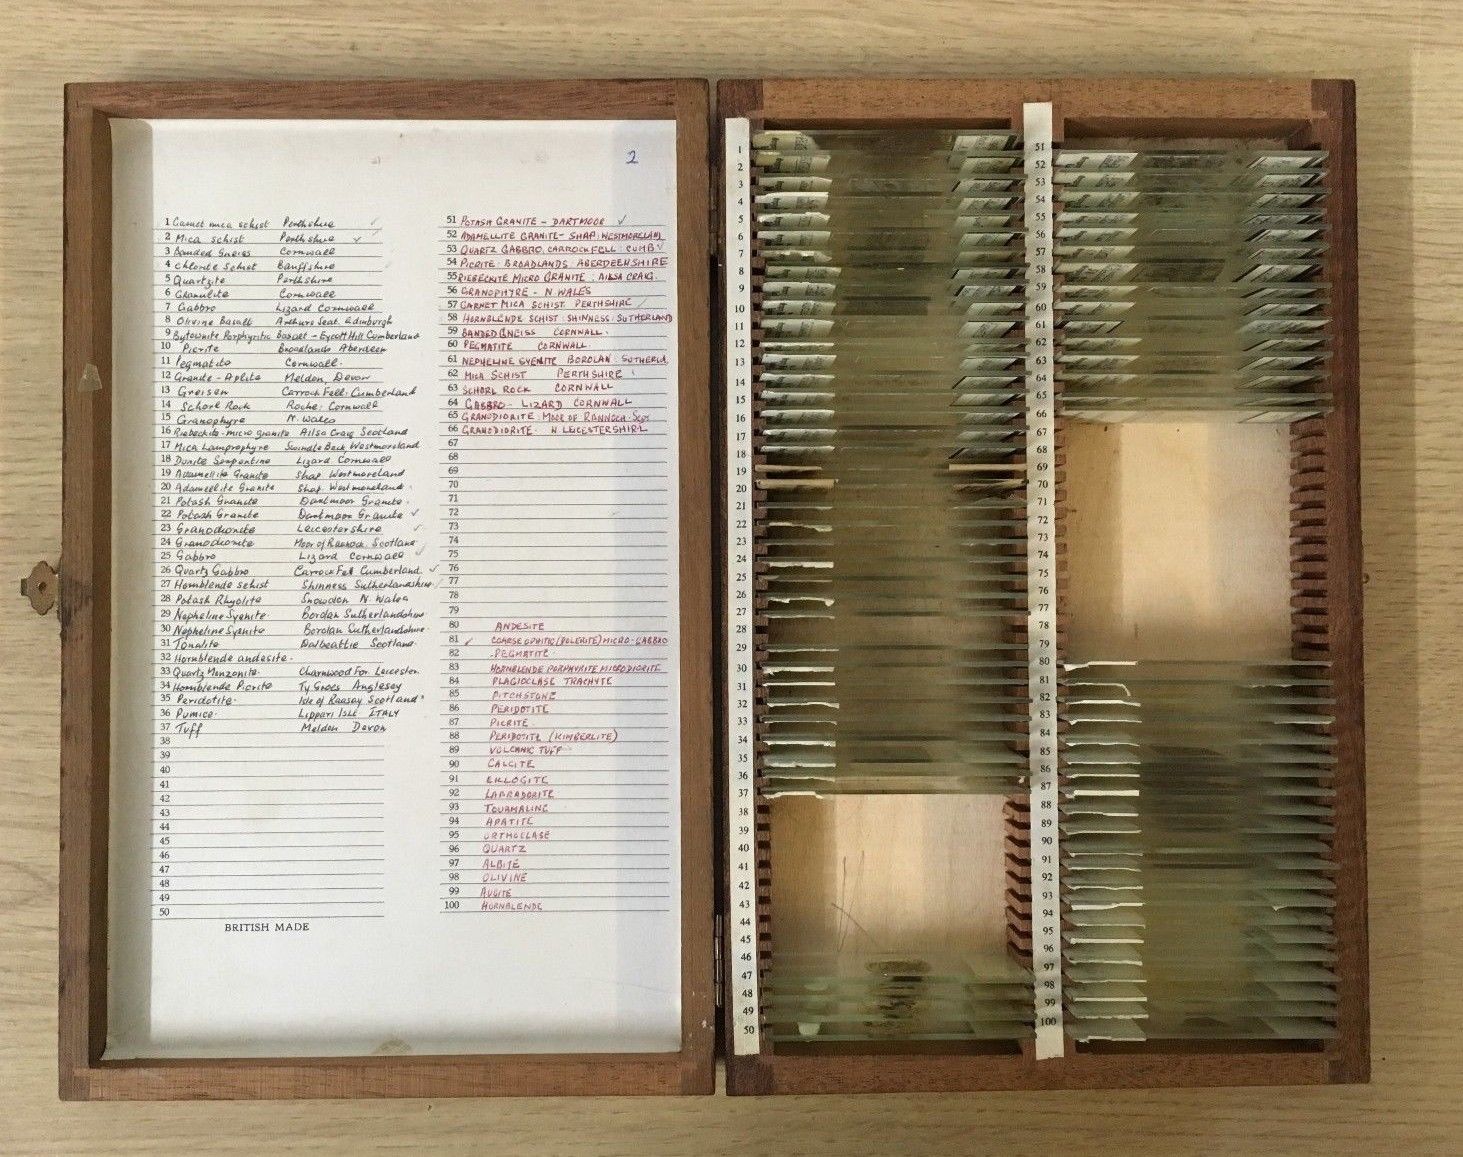 2
1 Garnet mica schist Perthshire ✓
2 Mica schist Perthshire ✓
3 Banded Gneiss Cornwall
4 Chlorite Schist Banffshire
5 Quartzite Perthshire
6 Granulite Cornwall
7 Gabbro Lizard Cornwall
8 Olivine Basalt Arthurs Seat. Edinburgh
9 Bytownite Porphyritic Basalt - Eycott Hill Cumberland
10 Picrite Broadlands Aberdeen
11 Pegmatite Cornwall
12 Granite-Aplite Meldon, Devon
13 Greisen Carrock Fell: Cumberland
14 Schorl Rock Roche: Cornwall
15 Granophyre N. Wales
16 Riebeckite-micro granite. Ailsa Craig Scotland
17 Mica Lamprophyre Swindle Beck, Westmoreland
18 Dunite Serpentine Lizard Cornwall
19 Adamellite Granite Shap Westmoreland
20 Adamellite Granite Shap. Westmoreland.
21 Potash Granite Dartmoor Granite.
22 Potash Granite Dartmoor Granite ✓
23 Granodiorite Leicestershire ✓
24 Granodiorite Moor of Rannock. Scotland
25 Gabbro Lizard Cornwall ✓
26 Quartz Gabbro Carrock Fell Cumberland. ✓
27 Hornblende schist Shinness Sutherlandshire
28 Potash Rhyolite Snowdon N. Wales
29 Nepheline Syenite Borolan Sutherlandshire
30 Nepheline Syenite Borolan Sutherlandshire.
31 Tonalite Dalbeattie Scotland.
32 Hornblende andesite.
33 Quartz Monzonite. Charnwood For. Leicester.
34 Hornblende Picrite Ty Groes Anglesey
35 Peridotite. Isle of Raasay Scotland
36 Pumice. Lippari Isle ITALY
37 Tuff Meldon Devon
38
39
40
41
42
43
44
45
46
47
48
49
50
BRITISH MADE
51 POTASH GRANITE - DARTMOOR ✓
52 ADAMELLITE GRANITE - SHAP: WESTMORELAND
53 QUARTZ GABBRO, CARROCK FELL: CUMB ✓
54 PICRITE: BROADLANDS: ABERDEENSHIRE
55 RIEBECKITE MICRO GRANITE: AILSA CRAIG.
56 GRANOPHYRE - N WALES
57 GARNET MICA SCHIST PERTHSHIRE
58 HORNBLENDE SCHIST: SHINNESS: SUTHERLAND
59 BANDED GNEISS CORNWALL.
60 PEGMATITE CORNWALL.
61 NEPHELINE SYENITE BOROLAN: SUTHERLA.
62 MICA SCHIST PERTHSHIRE
63 SCHORL ROCK CORNWALL
64 GABBRO - LIZARD CORNWALL
65 GRANODIORITE: MOOR OF RANNOCH: SCOT
66 GRANODIORITE. N LEICESTERSHIRE
67
68
69
70
71
72
73
74
75
76
77
78
79
80 ANDESITE
81 ✓ COARSE OPHITIC (DOLERITE) MICRO-GABBRO
82 PEGMATITE
83 HORNBLENDE PORPHYRITE MICRODIORITE
84 PLAGIOCLASE TRACHYTE
85 PITCHSTONE
86 PERIDOTITE
87 PICRITE.
88 PERIDOTITE (KIMBERLITE)
89 VOLCANIC TUFF
90 CALCITE
91 EKLOGITE
92 LABRADORITE
93 TOURMALINE
94 APATITE
95 ORTHOCLASE
96 QUARTZ
97 ALBITE
98 OLIVINE
99 AUGITE
100 HORNBLENDE
1
2
3
4
5
6
7
8
9
10
11
12
13
14
15
16
17
18
19
20
21
22
23
24
25
26
27
28
29
30
31
32
33
34
35
36
37
38
39
40
41
42
43
44
45
46
47
48
49
50
51
52
53
54
55
56
57
58
59
60
61
62
63
64
65
66
67
68
69
70
71
72
73
74
75
76
77
78
79
80
81
82
83
84
85
86
87
88
89
90
91
92
93
94
95
96
97
98
99
100